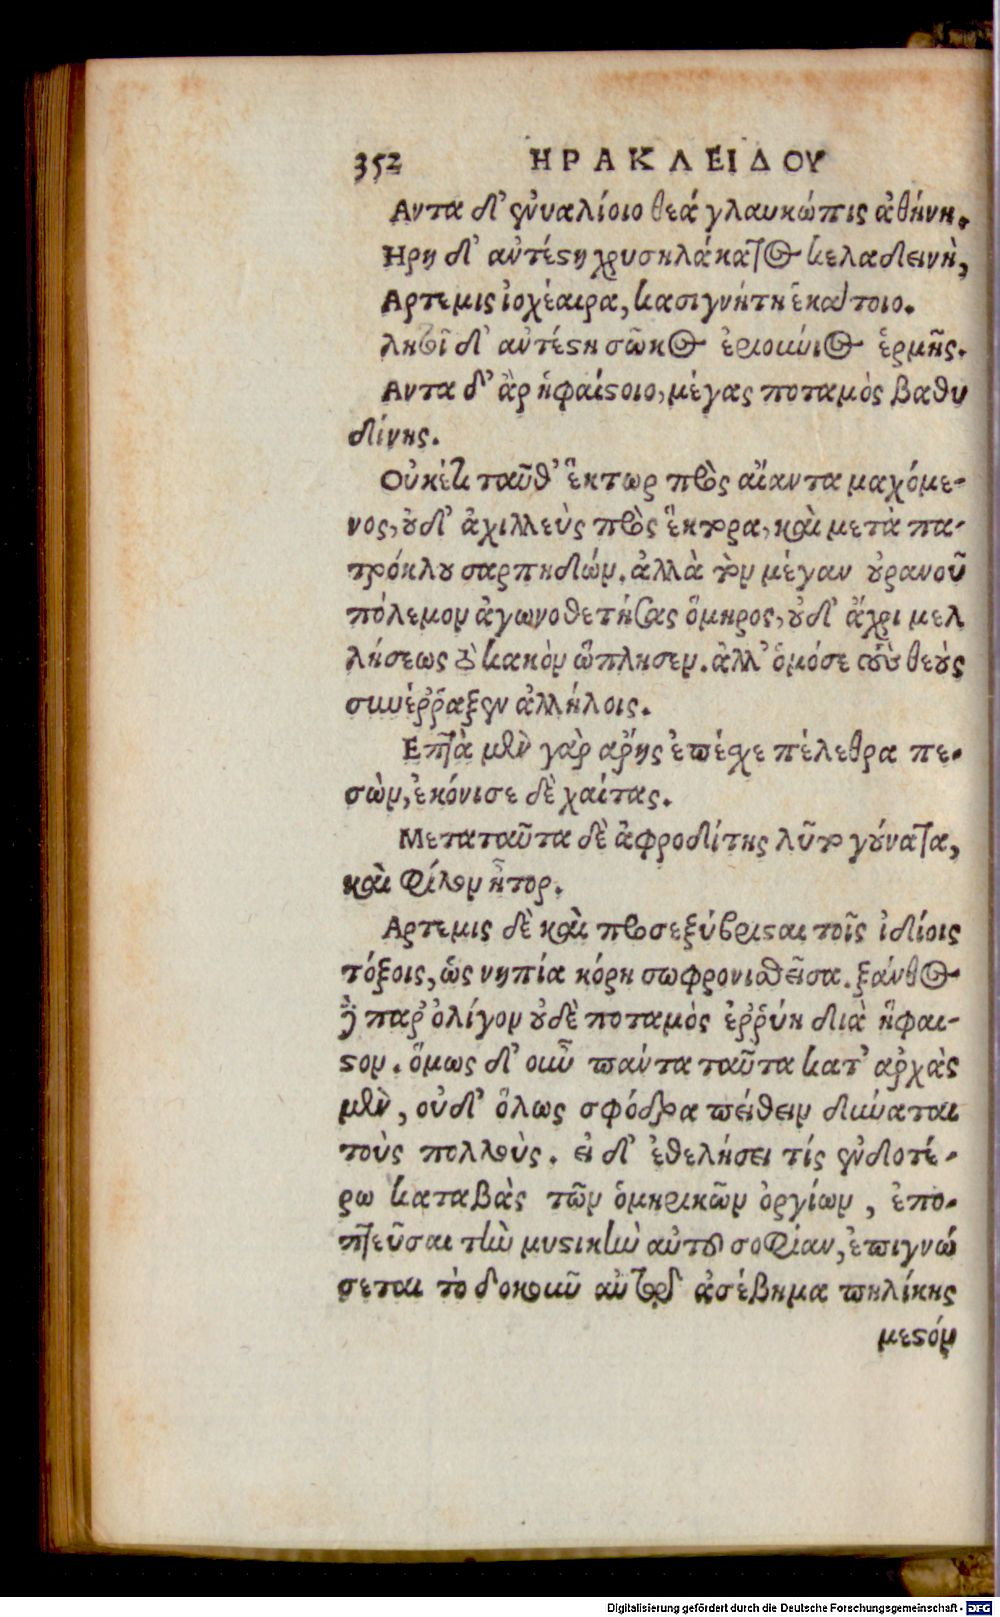 352 ΗΡΑΚΛΕΙΔΟΥ
Αντα δ' ἐνυαλίοιο θεά γλαυκώπις ἀθήνη.
Ηρη δ' αὐτέστη χρυσηλάκατος κελαδεινὴ,
Αρτεμις ἰοχέαιρα, κασιγνήτη ἑκάτοιο.
λητοῖ δ' αὐτέστη σῶκος ἐριούνιος ἑρμῆς.
Αντα δ' ἂρ ἡφαίστοιο, μέγας ποταμὸς βαθυ
δίνης.
Οὐκέτι ταῦθ' ἕκτωρ πρὸς αἴαντα μαχόμε-
νος, οὐδ' ἀχιλλεὺς πρὸς ἕκτορα, καὶ μετὰ πα-
τρόκλου σαρπηδών. ἀλλὰ τὸν μέγαν οὐρανοῦ
πόλεμον ἀγωνοθετήσας ὅμηρος, οὐδ' ἄχρι μελ
λήσεως τὸ κακὸν ὥπλησεν. ἀλλ' ὁμόσε τοὺς θεοὺς
συνέῤῥαξεν ἀλλήλοις.
Επτὰ μὲν γὰρ αῤης ἐπέσχε πέλεθρα πε-
σὼν, ἐκόνισε δὲ χαίτας.
Μεταταῦτα δὲ ἀφροδίτης λῦτο γούνατα,
καὶ φίλον ἦτορ.
Αρτεμις δὲ καὶ προσεξύβρισαι τοῖς ἰδίοις
τόξοις, ὡς νηπία κόρη σωφρονισθεῖσα. ξάνθος
δὲ παρ' ὀλίγον οὐδὲ ποταμὸς ἐῤῥύη διὰ ἥφαι-
στον. ὅμως δ' οὖν πάντα ταῦτα κατ' ἀρχὰς
μὲν, οὐδ' ὅλως σφόδρα πείθειν δύναται
τοὺς πολλοὺς. εἰ δ' ἐθελήσει τίς ἐνδοτέ-
ρω καταβὰς τῶν ὁμηρικῶν ὀργίων, ἐπο-
πτεῦσαι τὴν μυστικὴν αὐτοῦ σοφίαν, ἐπιγνώ
σεται τὸ δοκοῦν αὐτῷ ἀσέβημα πηλίκης
μεστόν